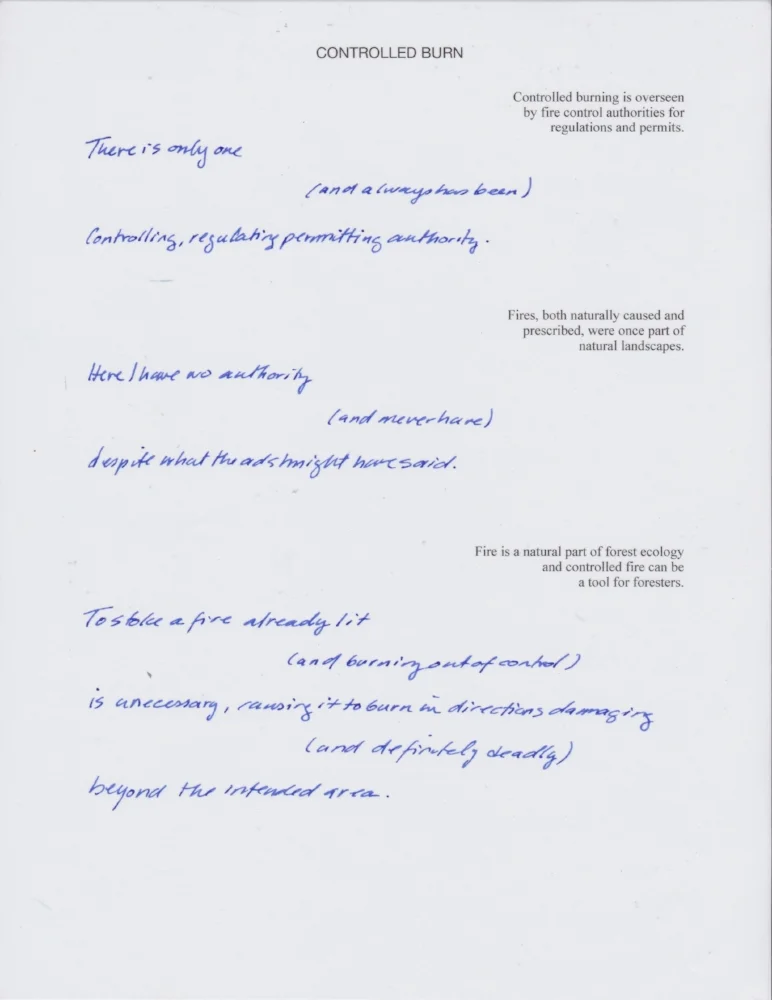 CONTROLLED BURN
Controlled burning is overseen
by fire control authorities for
regulations and permits.
There is only one
(and always has been)
Controlling, regulating permitting authority.
Fires, both naturally caused and
prescribed, were once part of
natural landscapes.
Here I have no authority
(and never have)
despite what the ads might have said.
Fire is a natural part of forest ecology
and controlled fire can be
a tool for foresters.
To stoke a fire already lit
(and burning out of control)
is unecessary, causing it to burn in directions damaging
(and definitely deadly)
beyond the intended area.